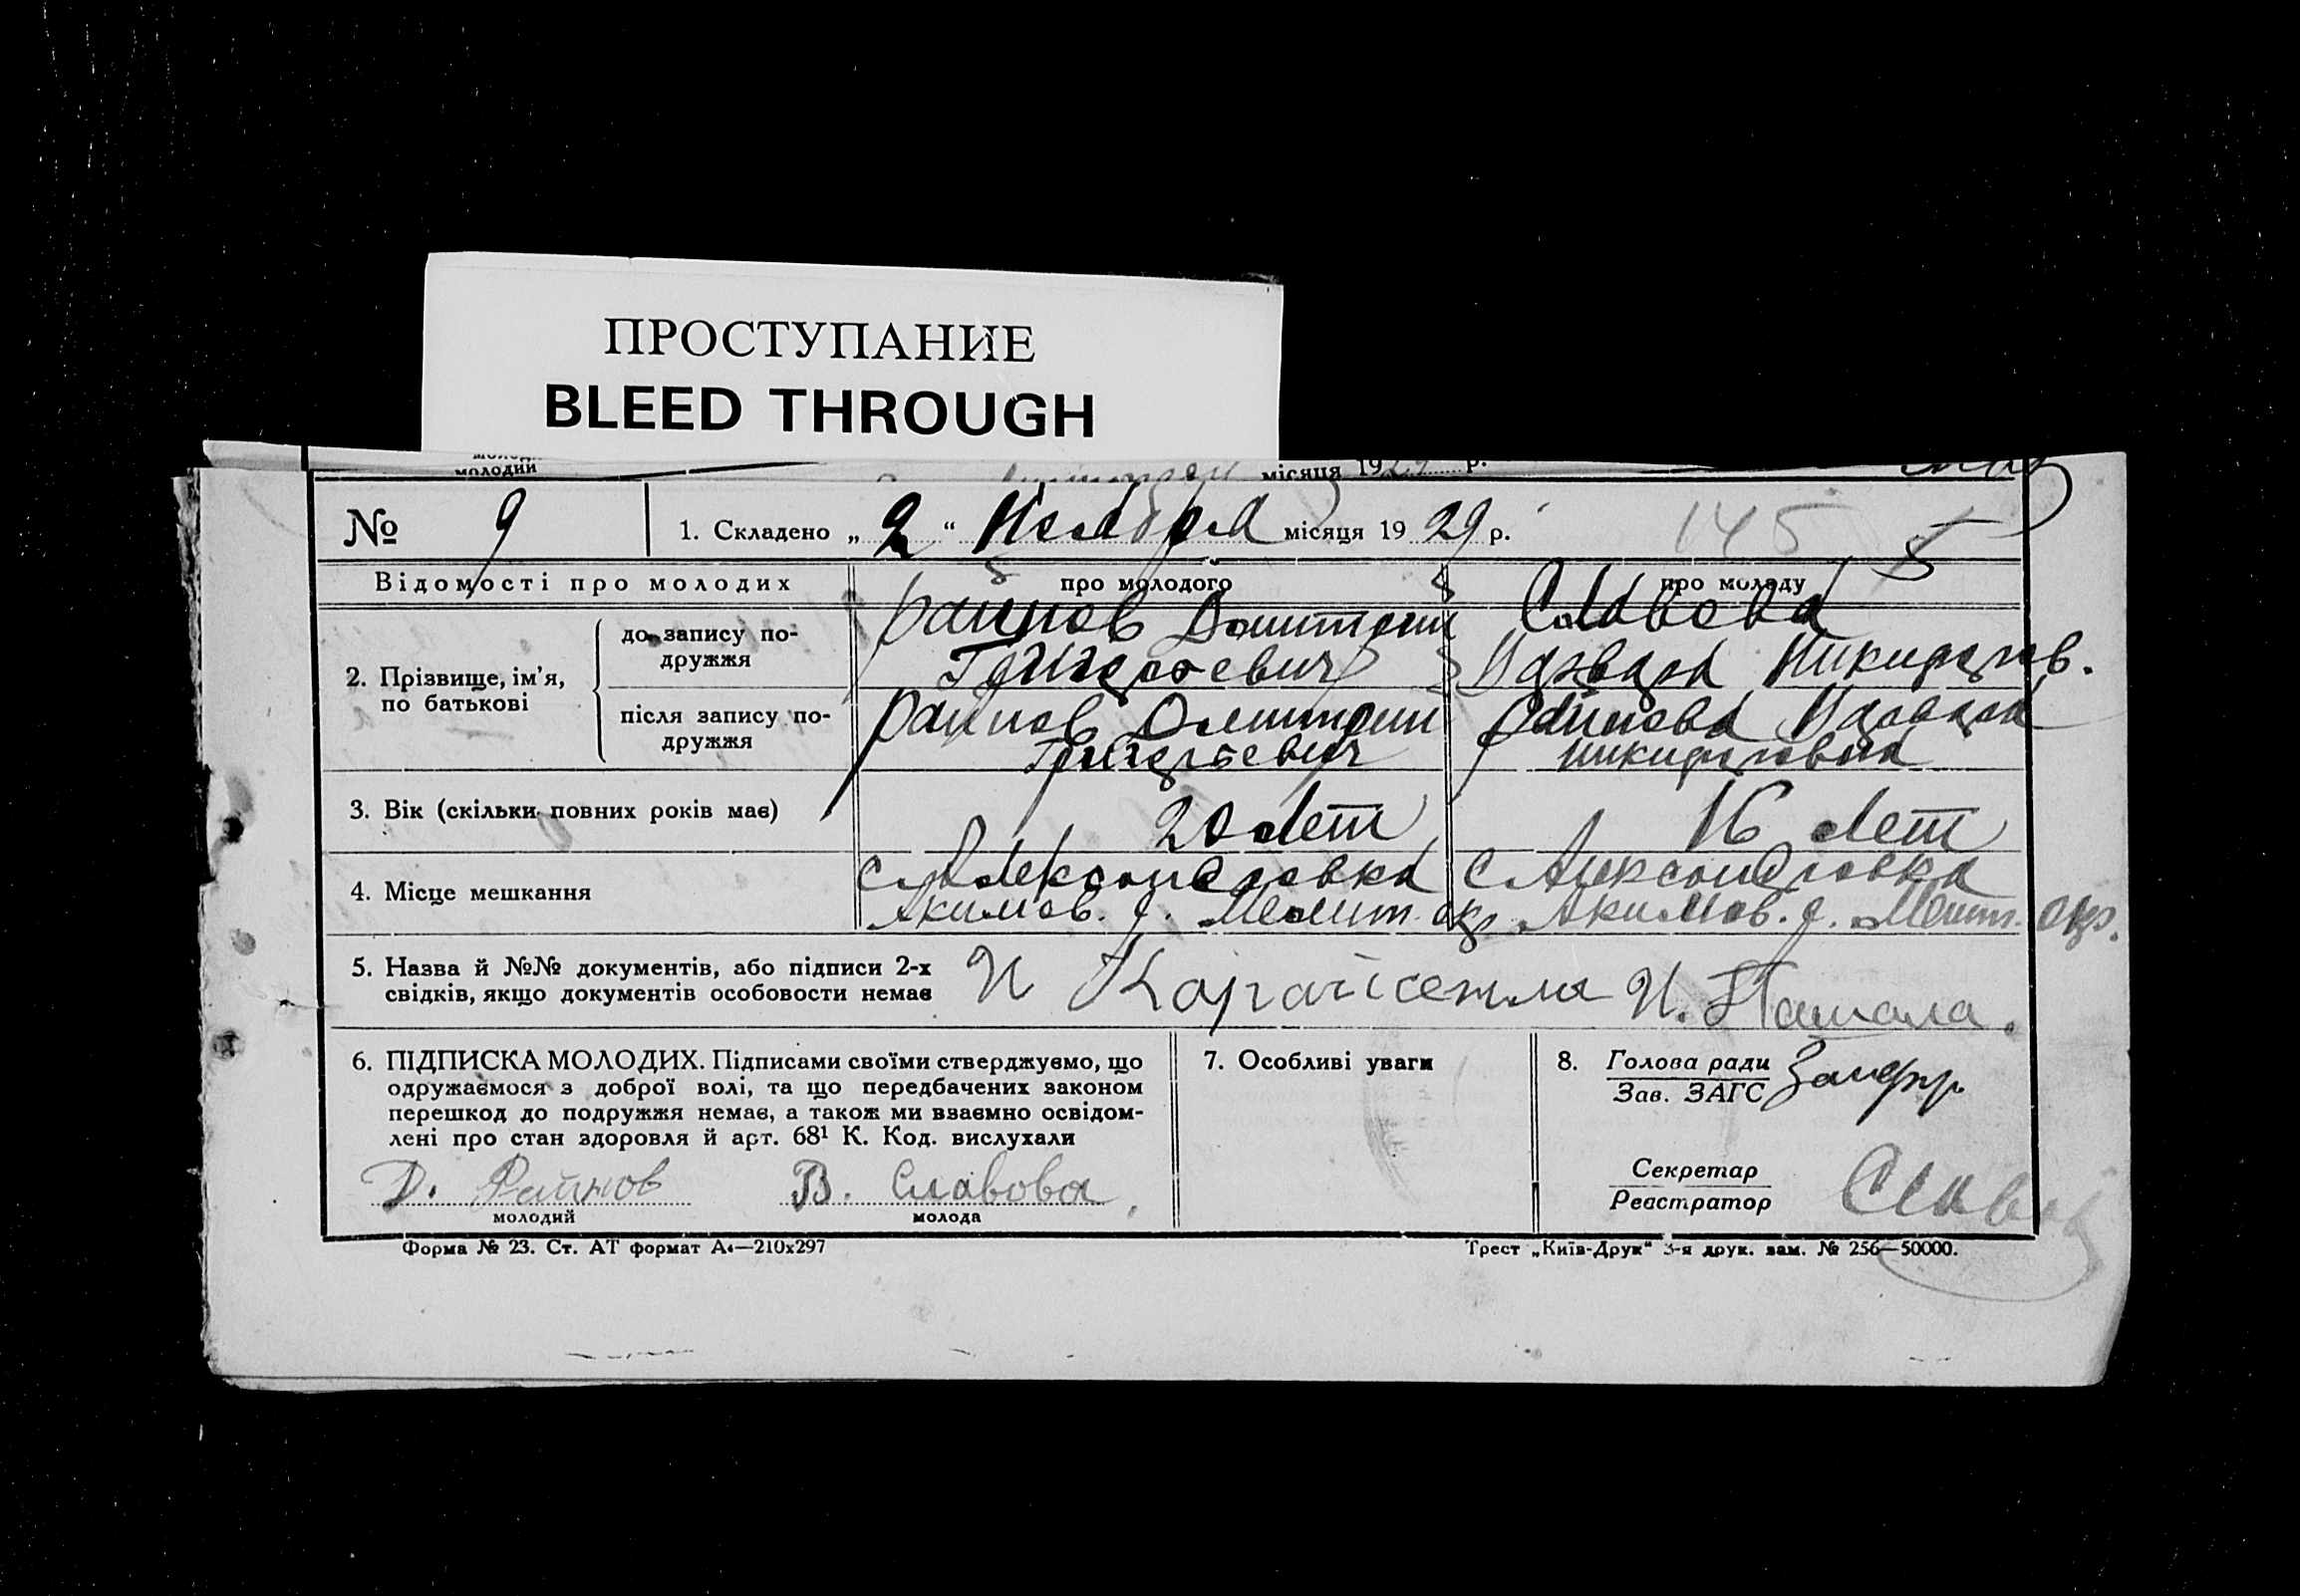 ПРОСТУПАНИЕ
BLEED THROUGH
молодий
місяця 192 р.
№ 9
1. Складено „ 2 “ Ноября місяця 19 29 р.
145
Відомості про молодих
про молодого
про молоду
2. Прізвище, ім’я, по батькові
до запису по-
дружжя
Райнов Дмитрий
Григорьевич
Славова
Варвара Никифоров.
після запису по-
дружжя
Райнов Дмитрий
Григорьевич
Райнова Варвара
Никифоровна
3. Вік (скільки повних років має)
20 лет
16 лет
4. Місце мешкання
с Александровка
Акимов. р. Мелит. окр.
с Александровка
Акимов. р. Мелит. окр.
5. Назва й №№ документів, або підписи 2-х
свідків, якщо документів особовости немає
И Карайсенли И. Пашала.
6. ПІДПИСКА МОЛОДИХ. Підписами своїми стверджуємо, що
одружаємося з доброї волі, та що передбачених законом
перешкод до подружжя немає, а також ми взаємно освідом-
лені про стан здоровля й арт. 68¹ К. Код. вислухали
Д. Райнов
молодий
В. Славова
молода
7. Особливі уваги
8. Голова ради
Зав. ЗАГС
Секретар
Реєстратор
Славов
Форма № 23. Ст. АТ формат А₄—210х297
Трест „Київ-Друк“ 3-я друк. зам. № 256—50000.